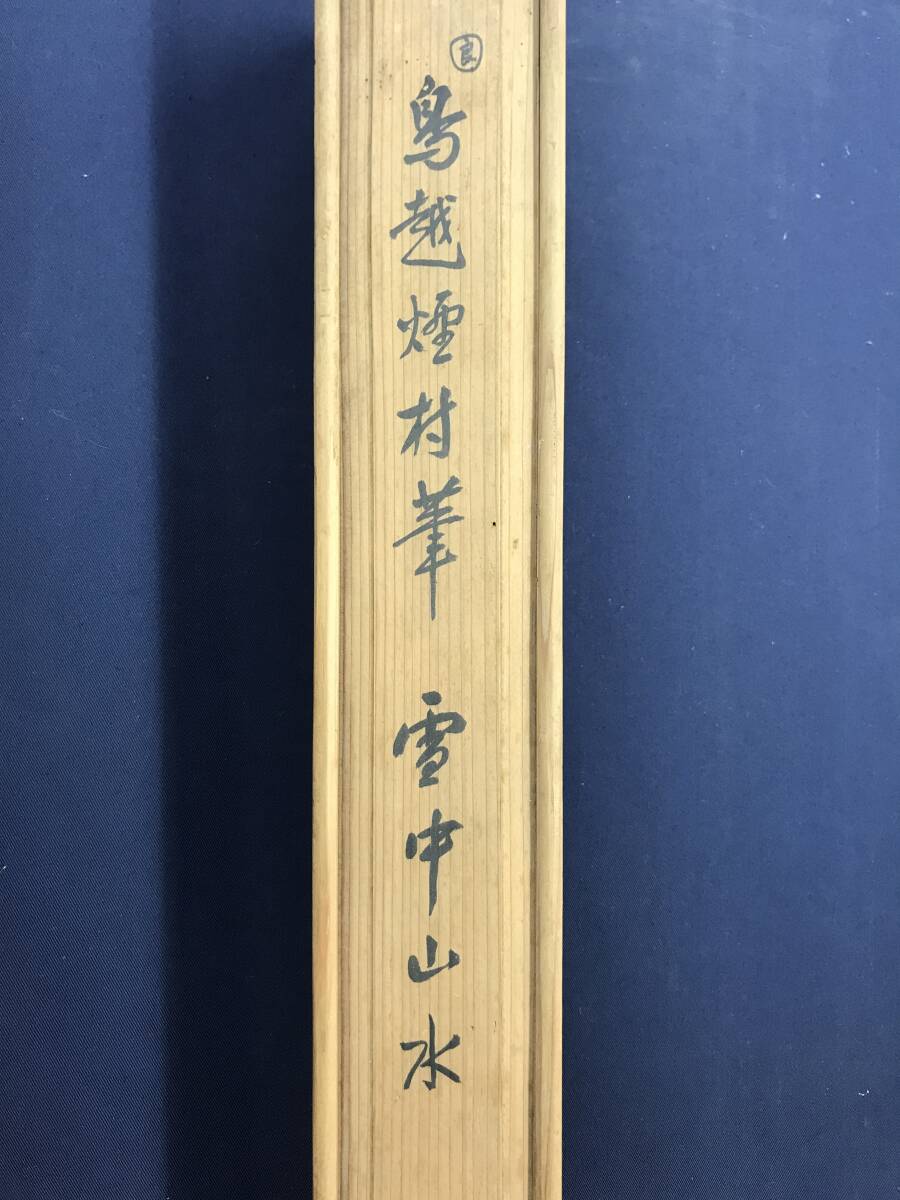 良
鳥越煙村筆 雪中山水